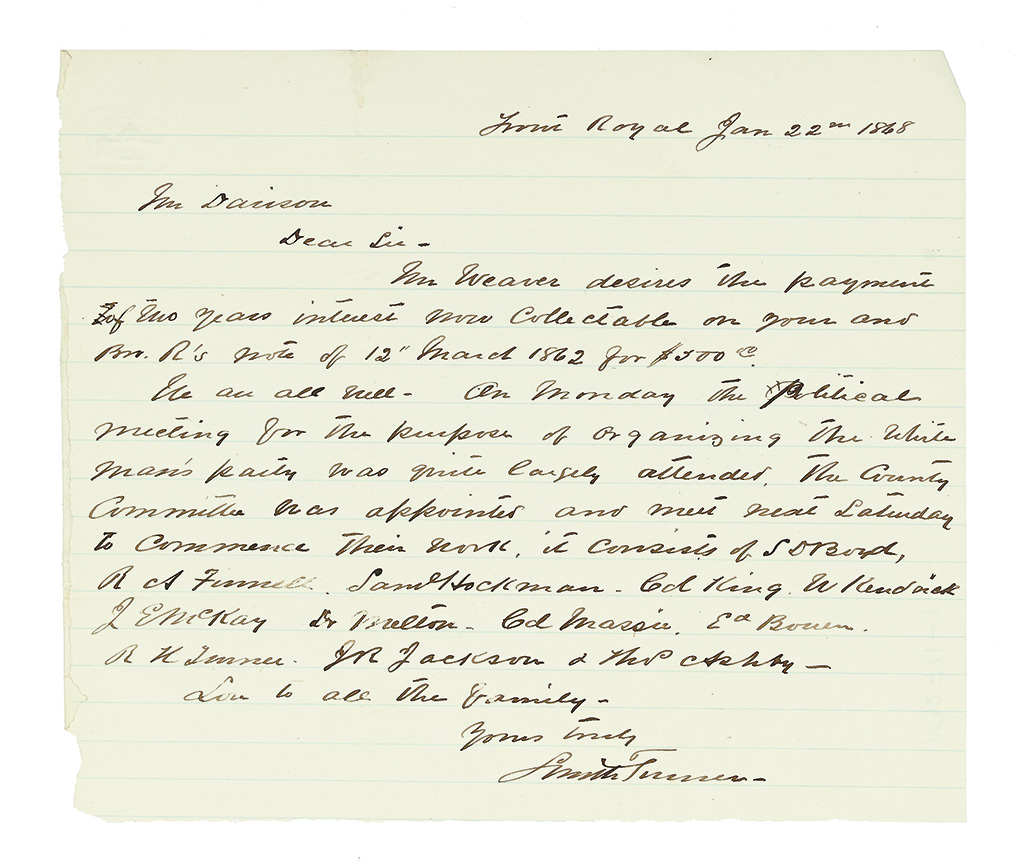 Front Royal Jan 22nd 1868
Mr Davison
Dear Sir -
Mr Weaver desires the payment
of two years interest now Collectable on your and
Bro. R's note of 12" March 1862 for $500
We are all well - On Monday the Political
meeting for the purpose of organizing the White
man's party was quite largely attended, the County
Committee was appointed and meet next Saturday
to commence their work, it consists of S D Boyd,
R A Finnell. Saml Hockman - Col King. W Kendrick
J E McKay Dr Melton - Col Massie. Ed Bowen.
R H Turner. J R Jackson & Thos Ashby -
Love to all the family -
Yours truly
Smith Turner -